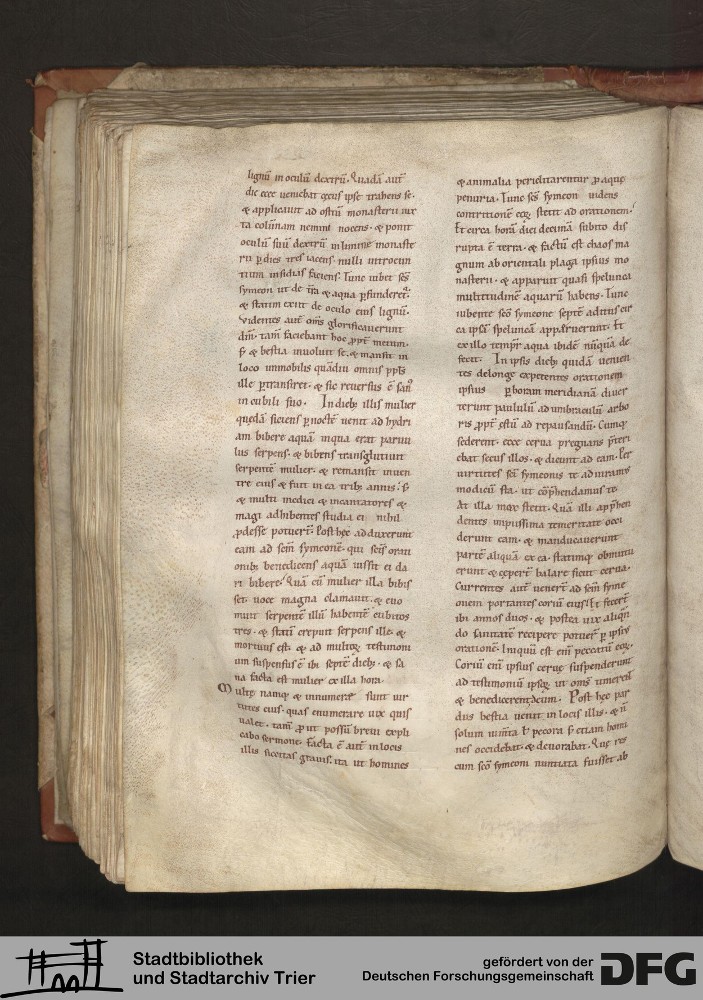 lignū in oculū dextrū. Quadā aut̄
die ecce veniebat cecus ipse trahens se.
& applicavit ad ostiū monasterii iux
ta colūnam nemini nocens. & ponit
oculū suū dextrū in limine monaste
rii p dies tres iacens. nulli introeun
tium insidias faciens. Tunc iubet scs̄
symeon ut de tr̄a & aqua pfunderet̄.
& statim exiit de oculo eius lignū.
Videntes aut̄ om̄s glorificaverunt
dm̄. tam̄ faciebant hoc ppt̄ metum.
s; & bestia involvit se. & mansit in
loco immobilis quādiu omnis ppl̄s
ille ptransiret. & sic reversus ē san
in cubili suo. In dieb; illis mulier
quedā siciens p noctē venit ad hydri
am bibere aquā in qua erat parvu
lus serpens. & bibens transglutivit
serpentē mulier. & remansit in ven
tre eius & fuit in ea trib; annis. s;
& multi medici & incantatores &
magi adhibentes studia ei nihil
pdesse potuer̄. Post hęc adduxerunt
eam ad scm̄ symeonē. qui scs̄ orati
onib; benedicens aquā iussit ei da
ri bibere. Quā cū mulier illa bibis
set. voce magna clamavit. & evo
muit serpentē illū habentē cubitos
tres. & statī crepuit serpens ille. &
mortuus est. & ad multoꝝ testimoni
um suspensus ē ibi septē dieb; & sa
na facta est mulier ex illa hora.
Multę namq; & innumerę sunt vir
tutes eius. quas enumerare vix quis
valet. tam̄ put possū brevi expli
cabo sermone. Facta ē aut̄ in locis
illis siccitas gravis. ita ut homines
& animalia periclitarentur p aquę
penuria. Tunc scs̄ symeon videns
contritionē eoꝝ stetit ad orationem.
Et circa horā diei decimā subito dis
rupta ē terra. & factū est chaos ma
gnum ab orientali plaga ipsius mo
nasterii. & apparuit quasi spelunca
multitudinē aquarū habens. Tunc
iubente scō symeone septē aditus cir
ca ipsā speluncā apparuerunt. Et
ex illo tempr̄ aqua ibidē nūquā de
fecit. In ipsis dieb; quidā venien
tes delonge expetentes orationem
ipsius p horam meridianā diver
terunt paululū ad umbraculū arbo
ris ppt̄ estū ad repausandū. Cumq;
sederent. ecce cerva pregnans pteri
ebat secus illos. & dicunt ad eam. Per
virtutes scī symeonis te adiuramus
modicū sta. ut cōphendamus te.
At illa mox stetit. Quā illi apphen
dentes impiissima temeritate occi
derunt eam. & manducaverunt
partē aliquā ex ea. statimq; obmutu
erunt & ceper̄ balare sicut cerva.
Currentes aut̄ vener̄ ad scm̄ syme
onem portantes coriū eius. Et fecer̄
ibi annos duos. & postea vix aliqn̄
do sanitatē recipere potuer̄ p ipsius
orationē. Iniquū est enī peccatū eoꝝ.
Coriū enī ipsius cervę suspenderunt
ad testimoniū ipsoꝝ. ut om̄s timerent
& benedicerent dm̄. Post hęc par
dus bestia venit in locis illis. & n̄
solum iumta ł pecora s; etiam homi
nes occidebat. & devorabat. Quę res
cum scō symeoni nuntiata fuisset ab
Stadtbibliothek
und Stadtarchiv Trier
gefördert von der
Deutschen Forschungsgemeinschaft
DFG